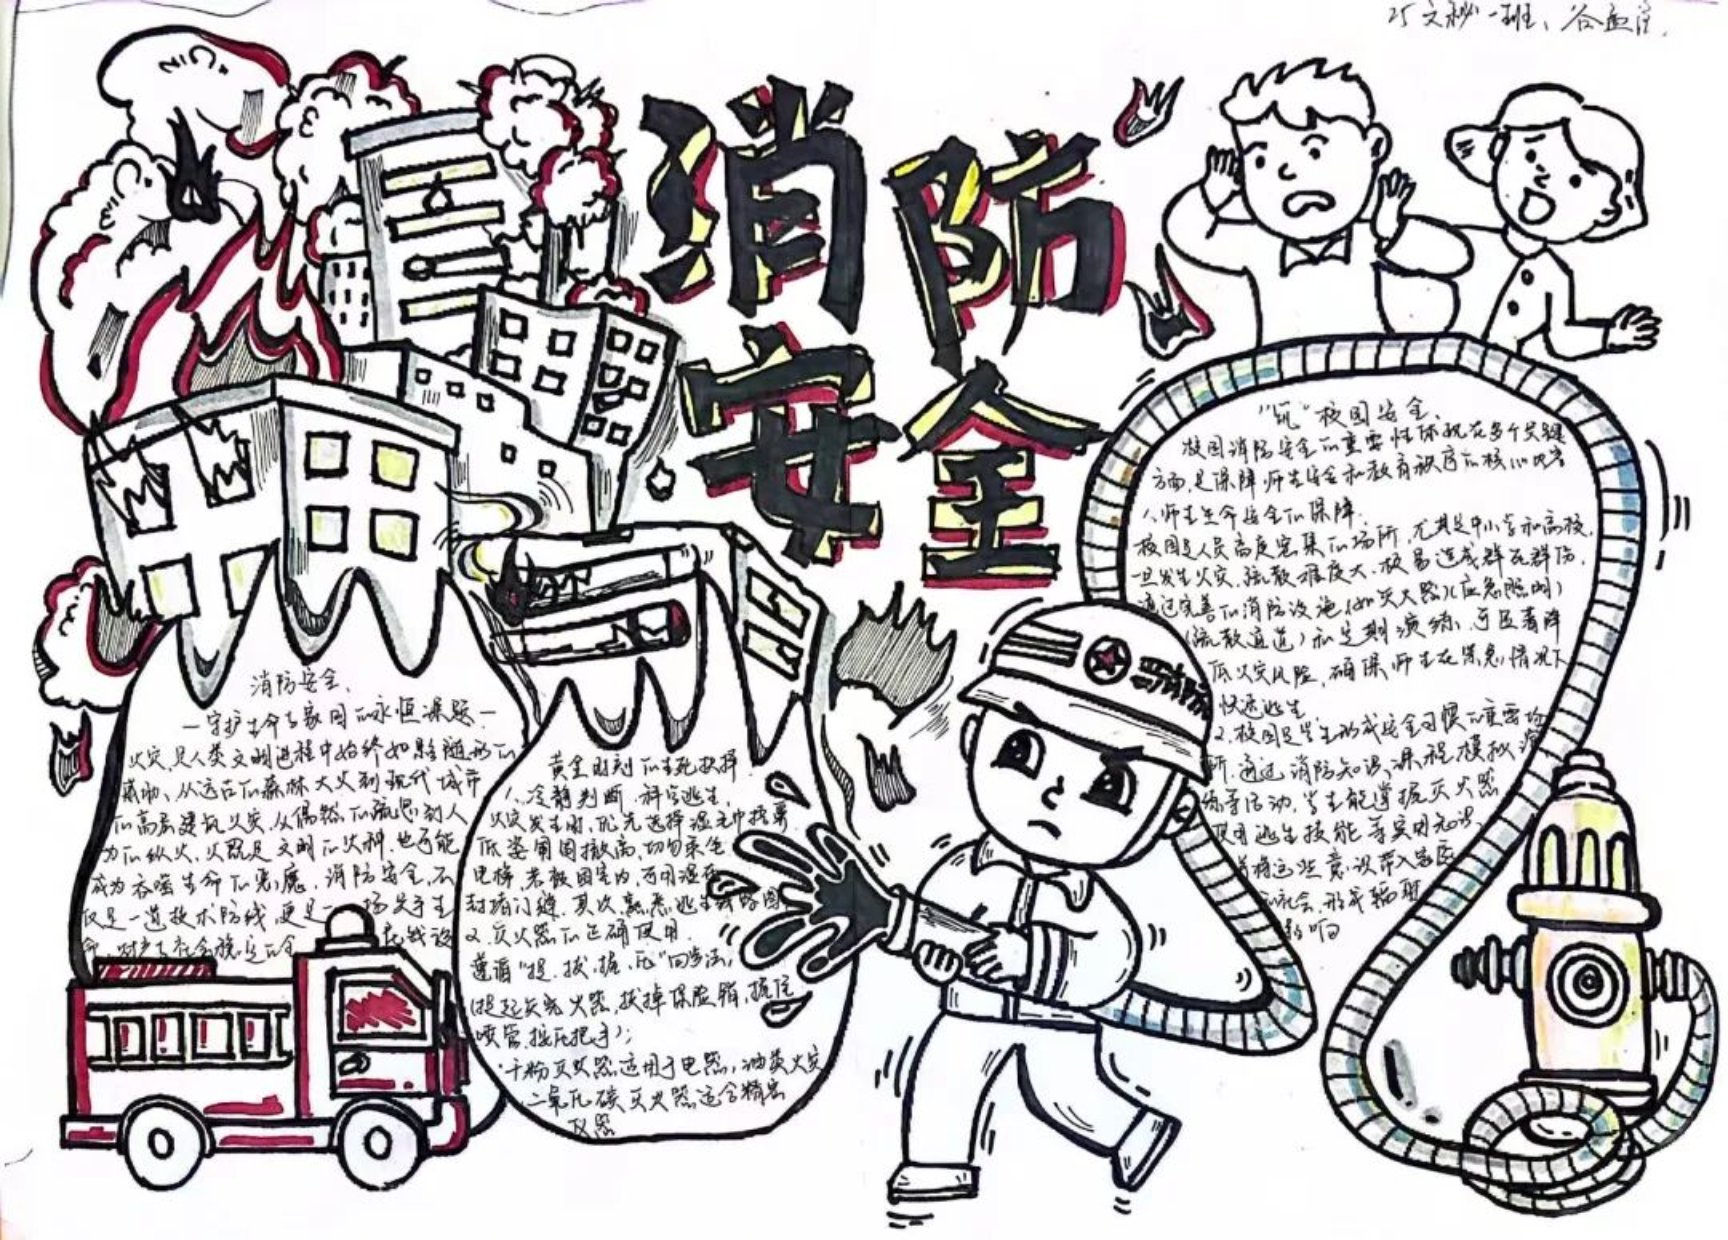 25文秘一班、谷孟
消防
安全
消防
消防安全、
—守护生命与家园的永恒课题—
火灾,是人类文明进程中始终如影随形的
威胁、从远古的森林大火到现代城市
的高层建筑火灾,从偶然的疏忽到人
为的纵火,火既是文明的火种,也可能
成为吞噬生命的恶魔,消防安全,不
仅是一道技术防线,更是一
黄金时刻的生死抉择
1、冷静判断,科学逃生,
火灾发生时,优先选择湿毛巾捂鼻
低姿匍匐撤离,切勿乘坐
电梯,若被困室内,可用湿
封堵门缝,其次熟悉逃生线路图
2、灭火器的正确使用.
遵循“提、拔、握、压”四步法,
(提起灭火器,拔掉保险销,握住
喷管,按压把手);
·干粉灭火器适用于电器,油类火灾
二氧化碳灭火器适合精密
仪器
“筑”校园安全、
校园消防安全的重要性体现在多个关键
方面,是保障师生安全和教育秩序的核心内容
1、师生生命安全的保障.
校园是人员高度密集的场所,尤其是中小学和高校,
一旦发生火灾,疏散难度大,极易造成群死群伤,
通过完善的消防设施(如灭火器)(应急照明)
(疏散通道)和定期演练,可显著降
低火灾风险,确保师生在紧急情况下
快速逃生
2、校园是学生形成安全习惯的重要场
所,通过消防知识课程,模拟演
练等活动,学生能掌握灭火器
使用逃生技能等实用知识,
将这些意识带入家庭
社会,形成辐射
影响